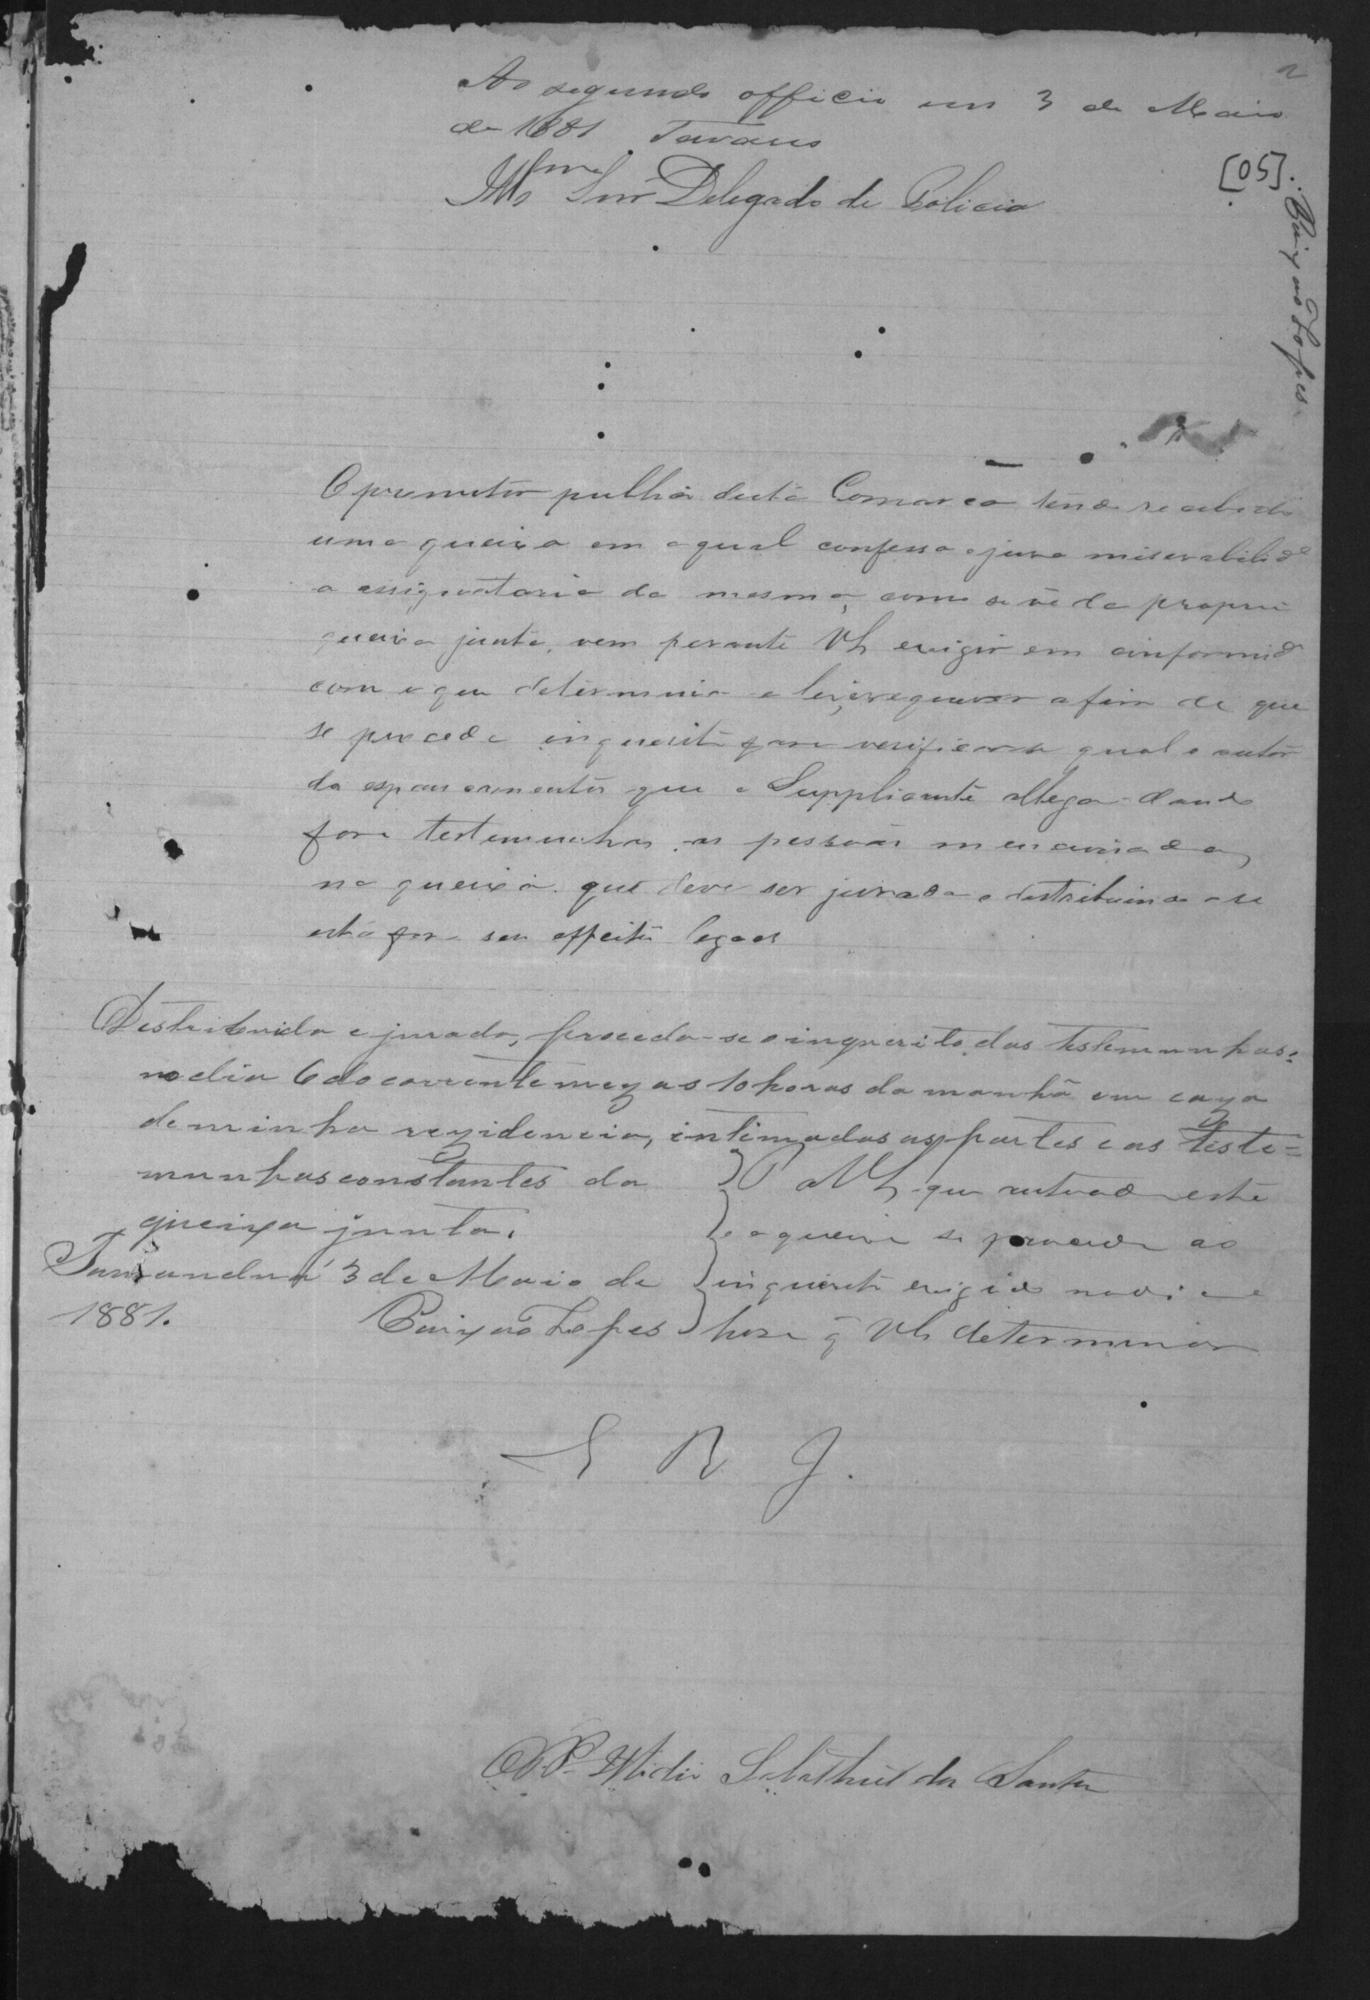 2
Ao segundo officio em 3 de Maio
de 1881. Tavares
[05].
Paixão Lopes
Illmo Snr Delegado de Policia
O promotor publico desta Comarca tendo recebido
uma queixa em a qual confessa e jura miserabilide
a assignataria da mesma, como se vê da propria
queixa junta, vem perante VS exigir em conformide
com o que determina a lei, requerer afim de que
se proceda inquerito para verificar-se qual o autor
do espancamento que a Supplicante allega dando
por testemunhas as pessoas mencionadas
na queixa que deve ser jurada e destribuindo-se
esta para seus effeitos legaes
Destribuida e jurada, proceda-se o inquerito das testemunhas
no dia 6 do corrente mez as 10 horas da manhã em caza
de minha rezidencia, intimadas as partes e as teste-
munhas constantes da
queixa junta.
Tamandua 3 de Maio de
1881. Paixão Lopes
P a VS que autuada esta
e a queixa se proceda ao
inquerito exigido no dia e
hora q VS determinar
E R J.
O P. P. Sebastião dos Santos